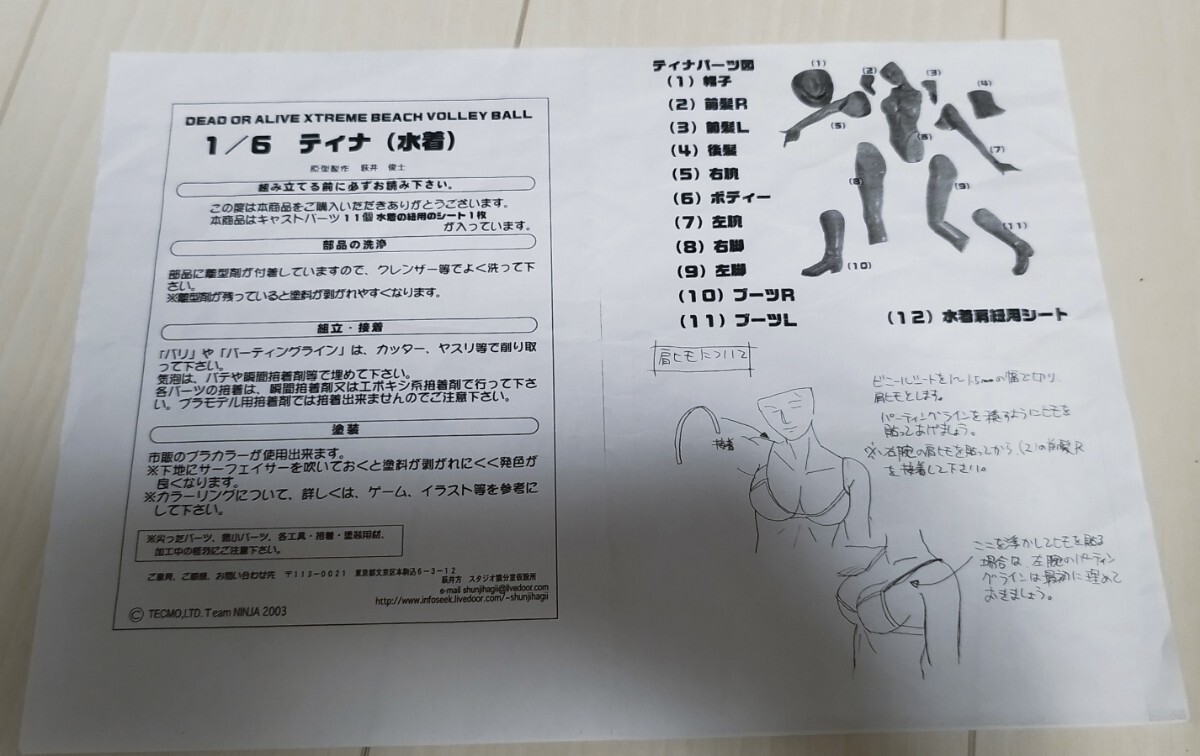 DEAD OR ALIVE XTREME BEACH VOLLEY BALL
1/6 ティナ（水着）
原型製作 萩井 俊士
組み立てる前に必ずお読み下さい。
この度は本商品をご購入いただきありがとうございます。
本商品はキャストパーツ11個 水着の紐用のシート1枚
が入っています。
部品の洗浄
部品に離型剤が付着していますので、クレンザー等でよく洗って下
さい。
※離型剤が残っていると塗料が剥がれやすくなります。
組立・接着
「バリ」や「パーティングライン」は、カッター、ヤスリ等で削り取
って下さい。
気泡は、パテや瞬間接着剤等で埋めて下さい。
各パーツの接着は、瞬間接着剤又はエポキシ系接着剤で行って下さ
い。プラモデル用接着剤では接着出来ませんのでご注意下さい。
塗装
市販のプラカラーが使用出来ます。
※下地にサーフェイサーを吹いておくと塗料が剥がれにくく発色が
良くなります。
※カラーリングについて、詳しくは、ゲーム、イラスト等を参考に
して下さい。
※尖ったパーツ、微小パーツ、各工具・接着・塗装用材、
加工中の怪我にご注意下さい。
ご意見、ご感想、お問い合わせ先 〒113-0021 東京都文京区本駒込6-3-12
萩井方 スタジオ震分室仮設所
e-mail shunjihagii@livedoor.com
http://www.infoseek.livedoor.com/~shunjihagii
© TECMO,LTD. Team NINJA 2003
ティナパーツ図
（1）帽子
（2）前髪R
（3）前髪L
（4）後髪
（5）右腕
（6）ボディー
（7）左腕
（8）右脚
（9）左脚
（10）ブーツR
（11）ブーツL
(1)
(2)
(3)
(4)
(5)
(6)
(7)
(8)
(9)
(10)
(11)
（12）水着肩紐用シート
肩ヒモについて
接着
ビニールシートを1〜1.5mmの幅で切り
肩ヒモとします。
パーティングラインを隠すようにヒモを
貼ってあげましょう。
※右腕の肩ヒモを貼ってから（2）の前髪R
を接着して下さい。
ここを浮かしてヒモを貼る
場合は 左腕のパーティン
グラインは最初に埋めて
おきましょう。